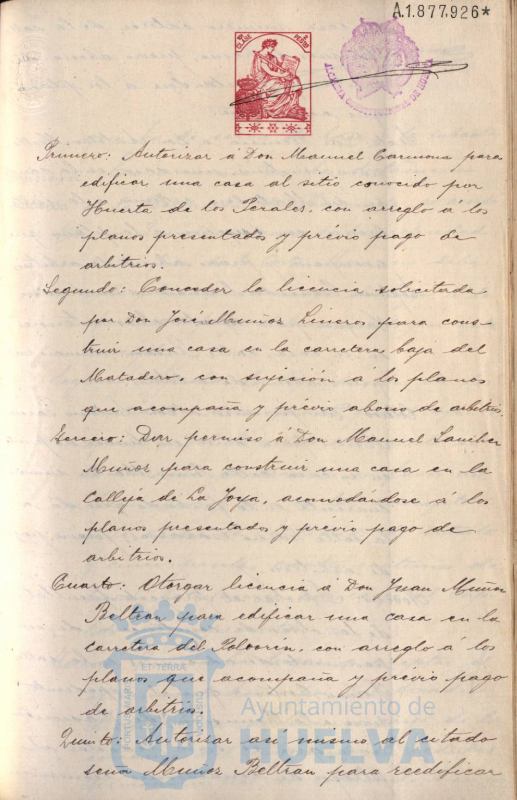 A.1.877.926*
CLASE
ALCALDIA CONSTITUCIONAL DE HUELVA
Primero: Autorizar á Don Manuel Carmona para
edificar una casa al sitio conocido por
Huerta de los Perales, con arreglo á los
planos presentados y prévio pago de
arbitrios.
Segundo: Conceder la licencia solicitada
por Don José Muñoz Linero, para cons-
truir una casa en la carretera baja del
Matadero, con sujeción á los planos
que acompaña y prévio abono de arbitrios.
Tercero: Dar permiso á Don Manuel Sanchez
Muñoz para construir una casa en la
Calleja de La Joya, acomodándose á los
planos presentados y prévio pago de
arbitrios.
Cuarto: Otorgar licencia á Don Juan Muñoz
Beltran para edificar una casa en la
carretera del Polvorin, con arreglo á los
planos que acompaña y prévio pago
de arbitrios.
Quinto: Autorizar asi mismo al citado
señor Muñoz Beltran para reedificar
Ayuntamiento de
HUELVA